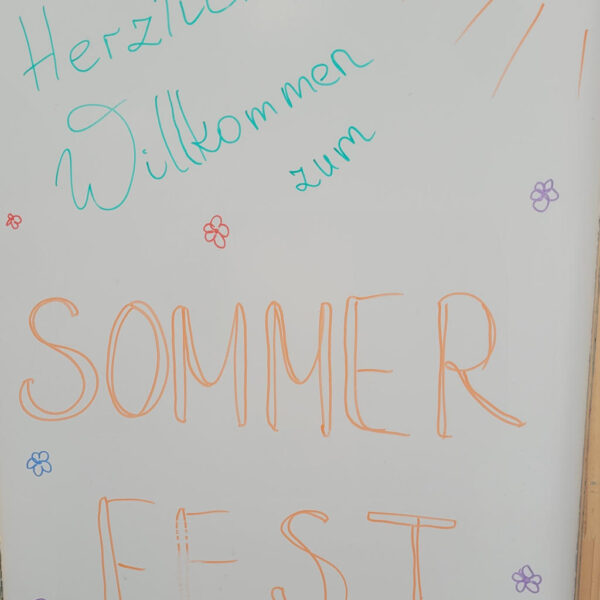 Herzlich
Willkommen
zum
SOMMER
FEST